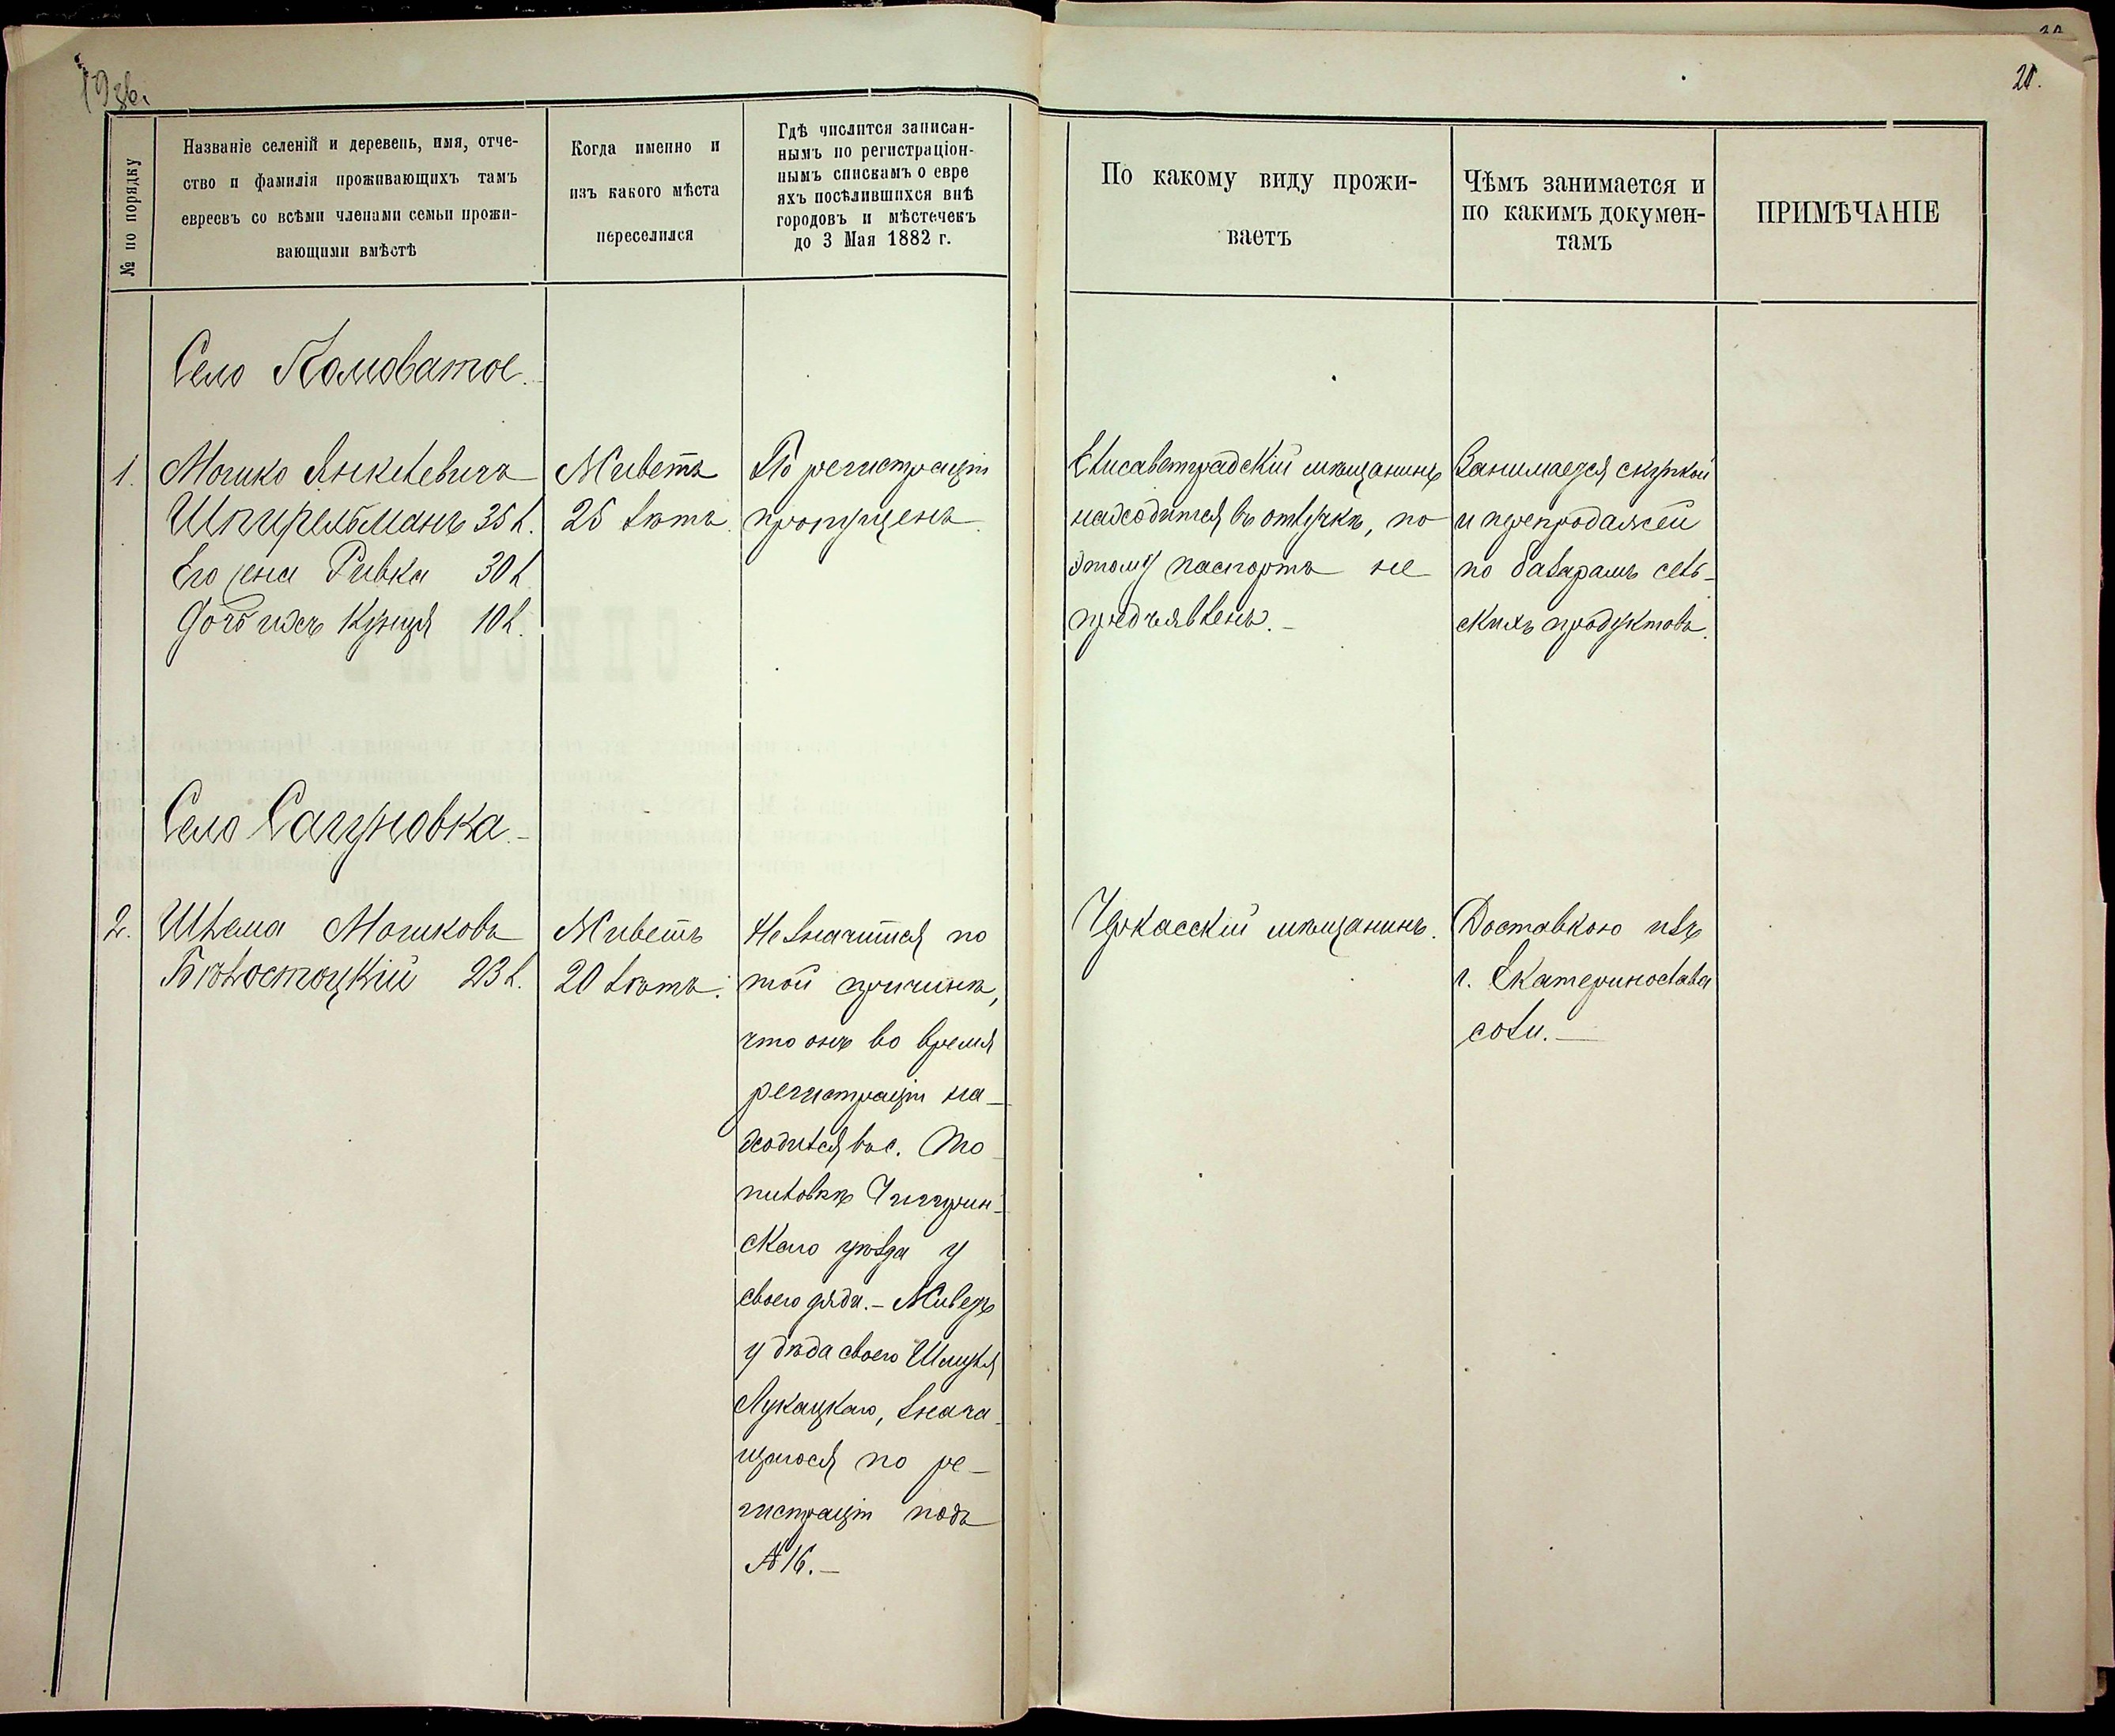 19 зв.
20.
№ по порядку
Названіе селеній и деревень, имя, отче-
ство и фамилія проживающихъ тамъ
евреевъ со всѣми членами семьи прожи-
вающими вмѣстѣ
Когда именно и
изъ какого мѣста
переселился
Гдѣ числится записан-
нымъ по регистраціон-
нымъ спискамъ о евре
яхъ посѣлившихся внѣ
городовъ и мѣстечекъ
до 3 Мая 1882 г.
По какому виду прожи-
ваетъ
Чѣмъ занимается и
по какимъ докумен-
тамъ
ПРИМѢЧАНІЕ
Село Коловатое.
1.
Мошко Янкелевичъ
Шпигельманъ 35 л.
Его жена Ривка 30 л.
Дочь ихъ Кунця 10 л.
Живетъ
25 лѣтъ.
По регистраціи
пропущенъ.
Елисаветградскій мѣщанинъ
находится въ отлучкѣ, по
этому паспортъ не
предъявленъ.-
Занимается скупкой
и перепродажей
по базарамъ сель-
скихъ продуктовъ.
Село Сагуновка.-
2.
Шлема Мошковъ
Бѣлостоцкій 23 л.
Живетъ
20 лѣтъ.
Не значится по
той причинѣ,
что онъ во время
регистраціи на-
ходился въ с. То-
пиловкѣ Чигирин-
скаго уѣзда у
своего дяди.- Живетъ
у дѣда своего Шмуля
Лукацкаго, знача-
щагося по ре-
гистраціи подъ
№ 16.-
Черкасскій мѣщанинъ.
Доставкою изъ
г. Екатеринослава
соли.-